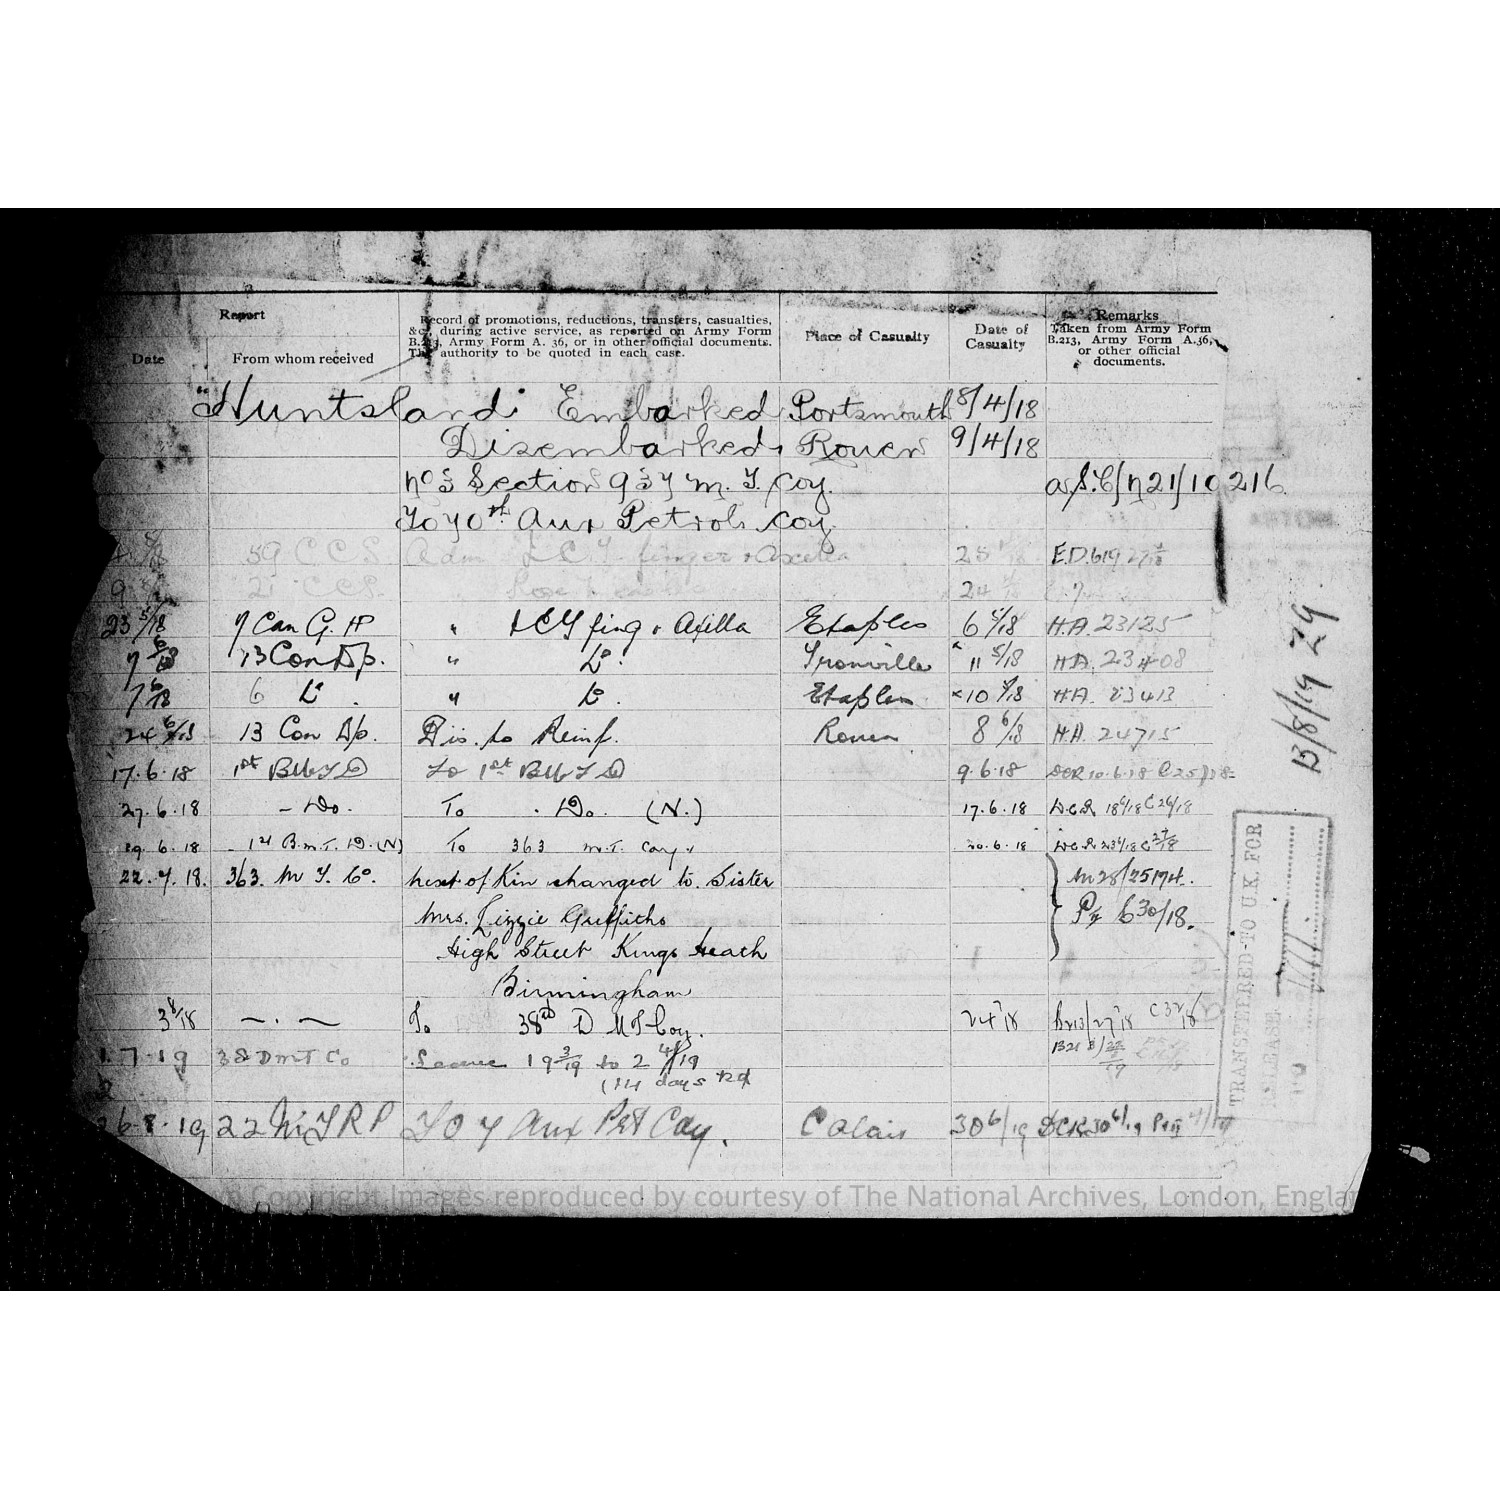 Report
Date
From whom received
Record of promotions, reductions, transfers, casualties, &c., during active service, as reported on Army Form B.213, Army Form A. 36, or in other official documents. The authority to be quoted in each case.
Place of Casualty
Date of Casualty
Remarks
Taken from Army Form B.213, Army Form A.36, or other official documents.
"Huntsland" Embarked Portsmouth 8/4/18
Disembarked Rouen 9/4/18
No 3 Section 937 M. T. Coy. 10216
To 70th Aux Petrol Coy
59 C C S Adm finger & Axilla 25 E.D. 619
21 CCS 24
23 5/18 7 Can G. H " I C T fing & Axilla Etaples 6 5/18 H.A. 23135
7 6/18 13 Con Dp. " Do. Trouville 11 5/18 H.A. 23408
7 6/18 6 Do. " Do. Etaples x10 5/18 H.A. 23413
24 6/18 13 Con Dp. Dis. to Reinf. Rouen 8 6/18 H.A. 24715
17.6.18 1st B M T D To 1st B M T D 9.6.18 DCR 10.6.18
27.6.18 - Do. To . Do. (N.) 17.6.18 D.C.R.
29.6.18 1st B.M.T. D. (N) To 363 M.T. Coy. 20.6.18
22.7.18. 363. M T. Co. Next of Kin changed to Sister M28/25174.
Mrs. Lizzie Griffiths
High Street Kings Heath
Birmingham
3 8/18 To 38th D M T Coy. 24 7 18
1.7.19 38 DMT Co Leave 19 3/19 to 2 4/19
(14 days
26.8.19 22 M T R P To 7 Aux Pet Coy. Calais 30 6/19 DCR 30 6/19
13/8/19
TRANSFERRED TO U.K. FOR
RELEASE
Copyright Images reproduced by courtesy of The National Archives, London, England